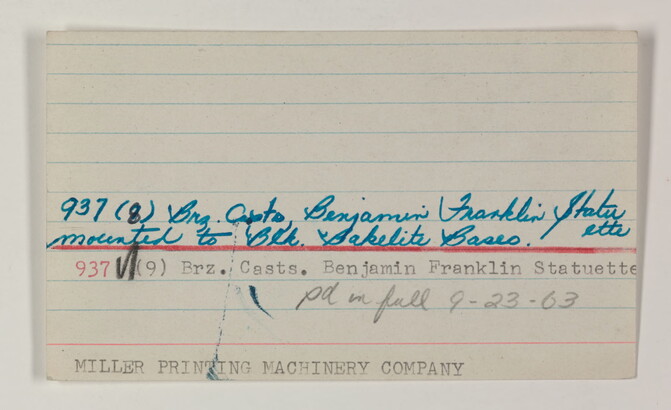 937 (8) Brz. Casts, Benjamin Franklin Statu
ette
mounted to Blk. Bakelite Bases.
937 (9) Brz. Casts. Benjamin Franklin Statuette
pd in full 9-23-63
MILLER PRINTING MACHINERY COMPANY